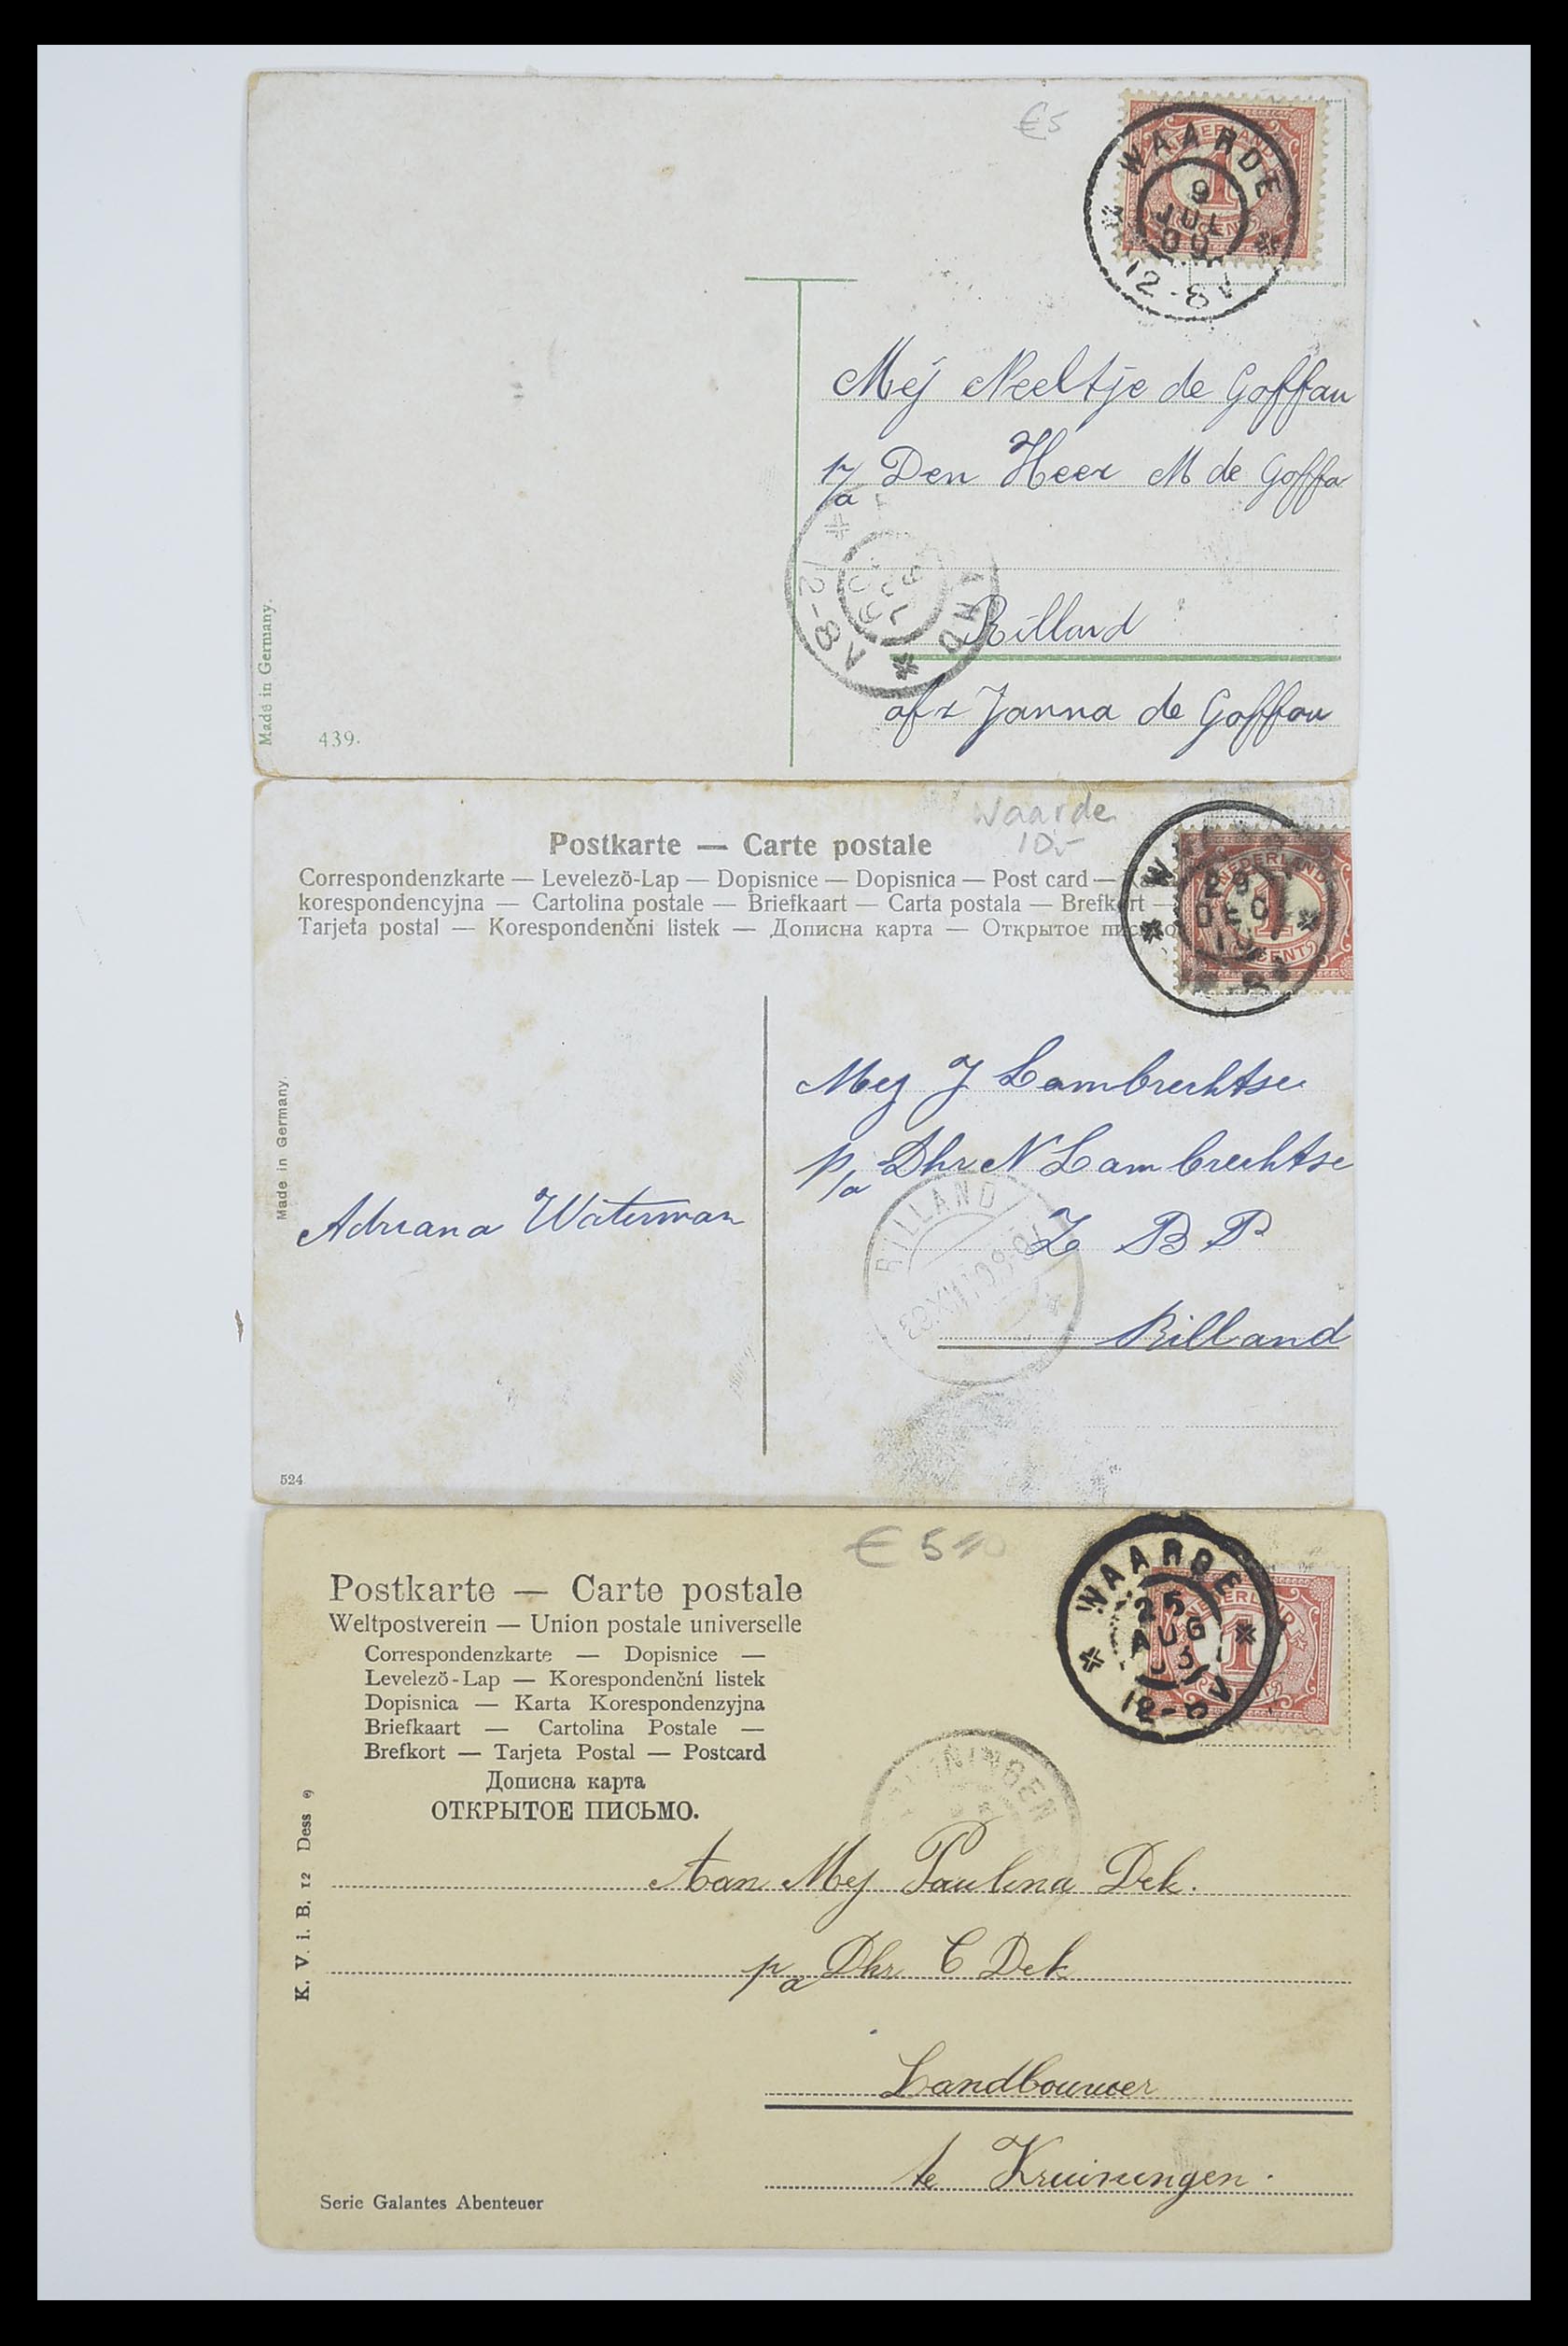 €5
NEDERLAND
1
CENT
WAARDE
9
JUL
09
12-8V
Mej Neeltje de Goffau
p/a Den Heer M de Goffa
Rilland
afz Janna de Goffau
9
JUL
09
12-8V
Made in Germany.
439.
Waarde
10,-
Postkarte — Carte postale
Correspondenzkarte — Levelező-Lap — Dopisnice — Dopisnica — Post card —
korespondencyjna — Cartolina postale — Briefkaart — Carta postala — Brefkort —
Tarjeta postal — Korespondenčni listek — Дописна карта — Открытое письмо
NEDERLAND
1
CENT
29
DEC
10
Mej J Lambrechtse
p/a Dhr N Lambrechtse
Z B P
Rilland
Adriana Waterman
RILLAND
Made in Germany.
524
€ 5
Postkarte — Carte postale
Weltpostverein — Union postale universelle
Correspondenzkarte — Dopisnice —
Levelező-Lap — Korespondenční listek
Dopisnica — Karta Korespondenzyjna
Briefkaart — Cartolina Postale —
Brefkort — Tarjeta Postal — Postcard
Дописна карта
ОТКРЫТОЕ ПИСЬМО.
NEDERLAND
1
CENT
WAARDE
25
AUG
12-8V
Aan Mej Paulina Dek.
p/a Dhr C Dek
Landbouwer
te Kruiningen.
K. V. i. B. 12 Dess 9
Serie Galantes Abenteuer